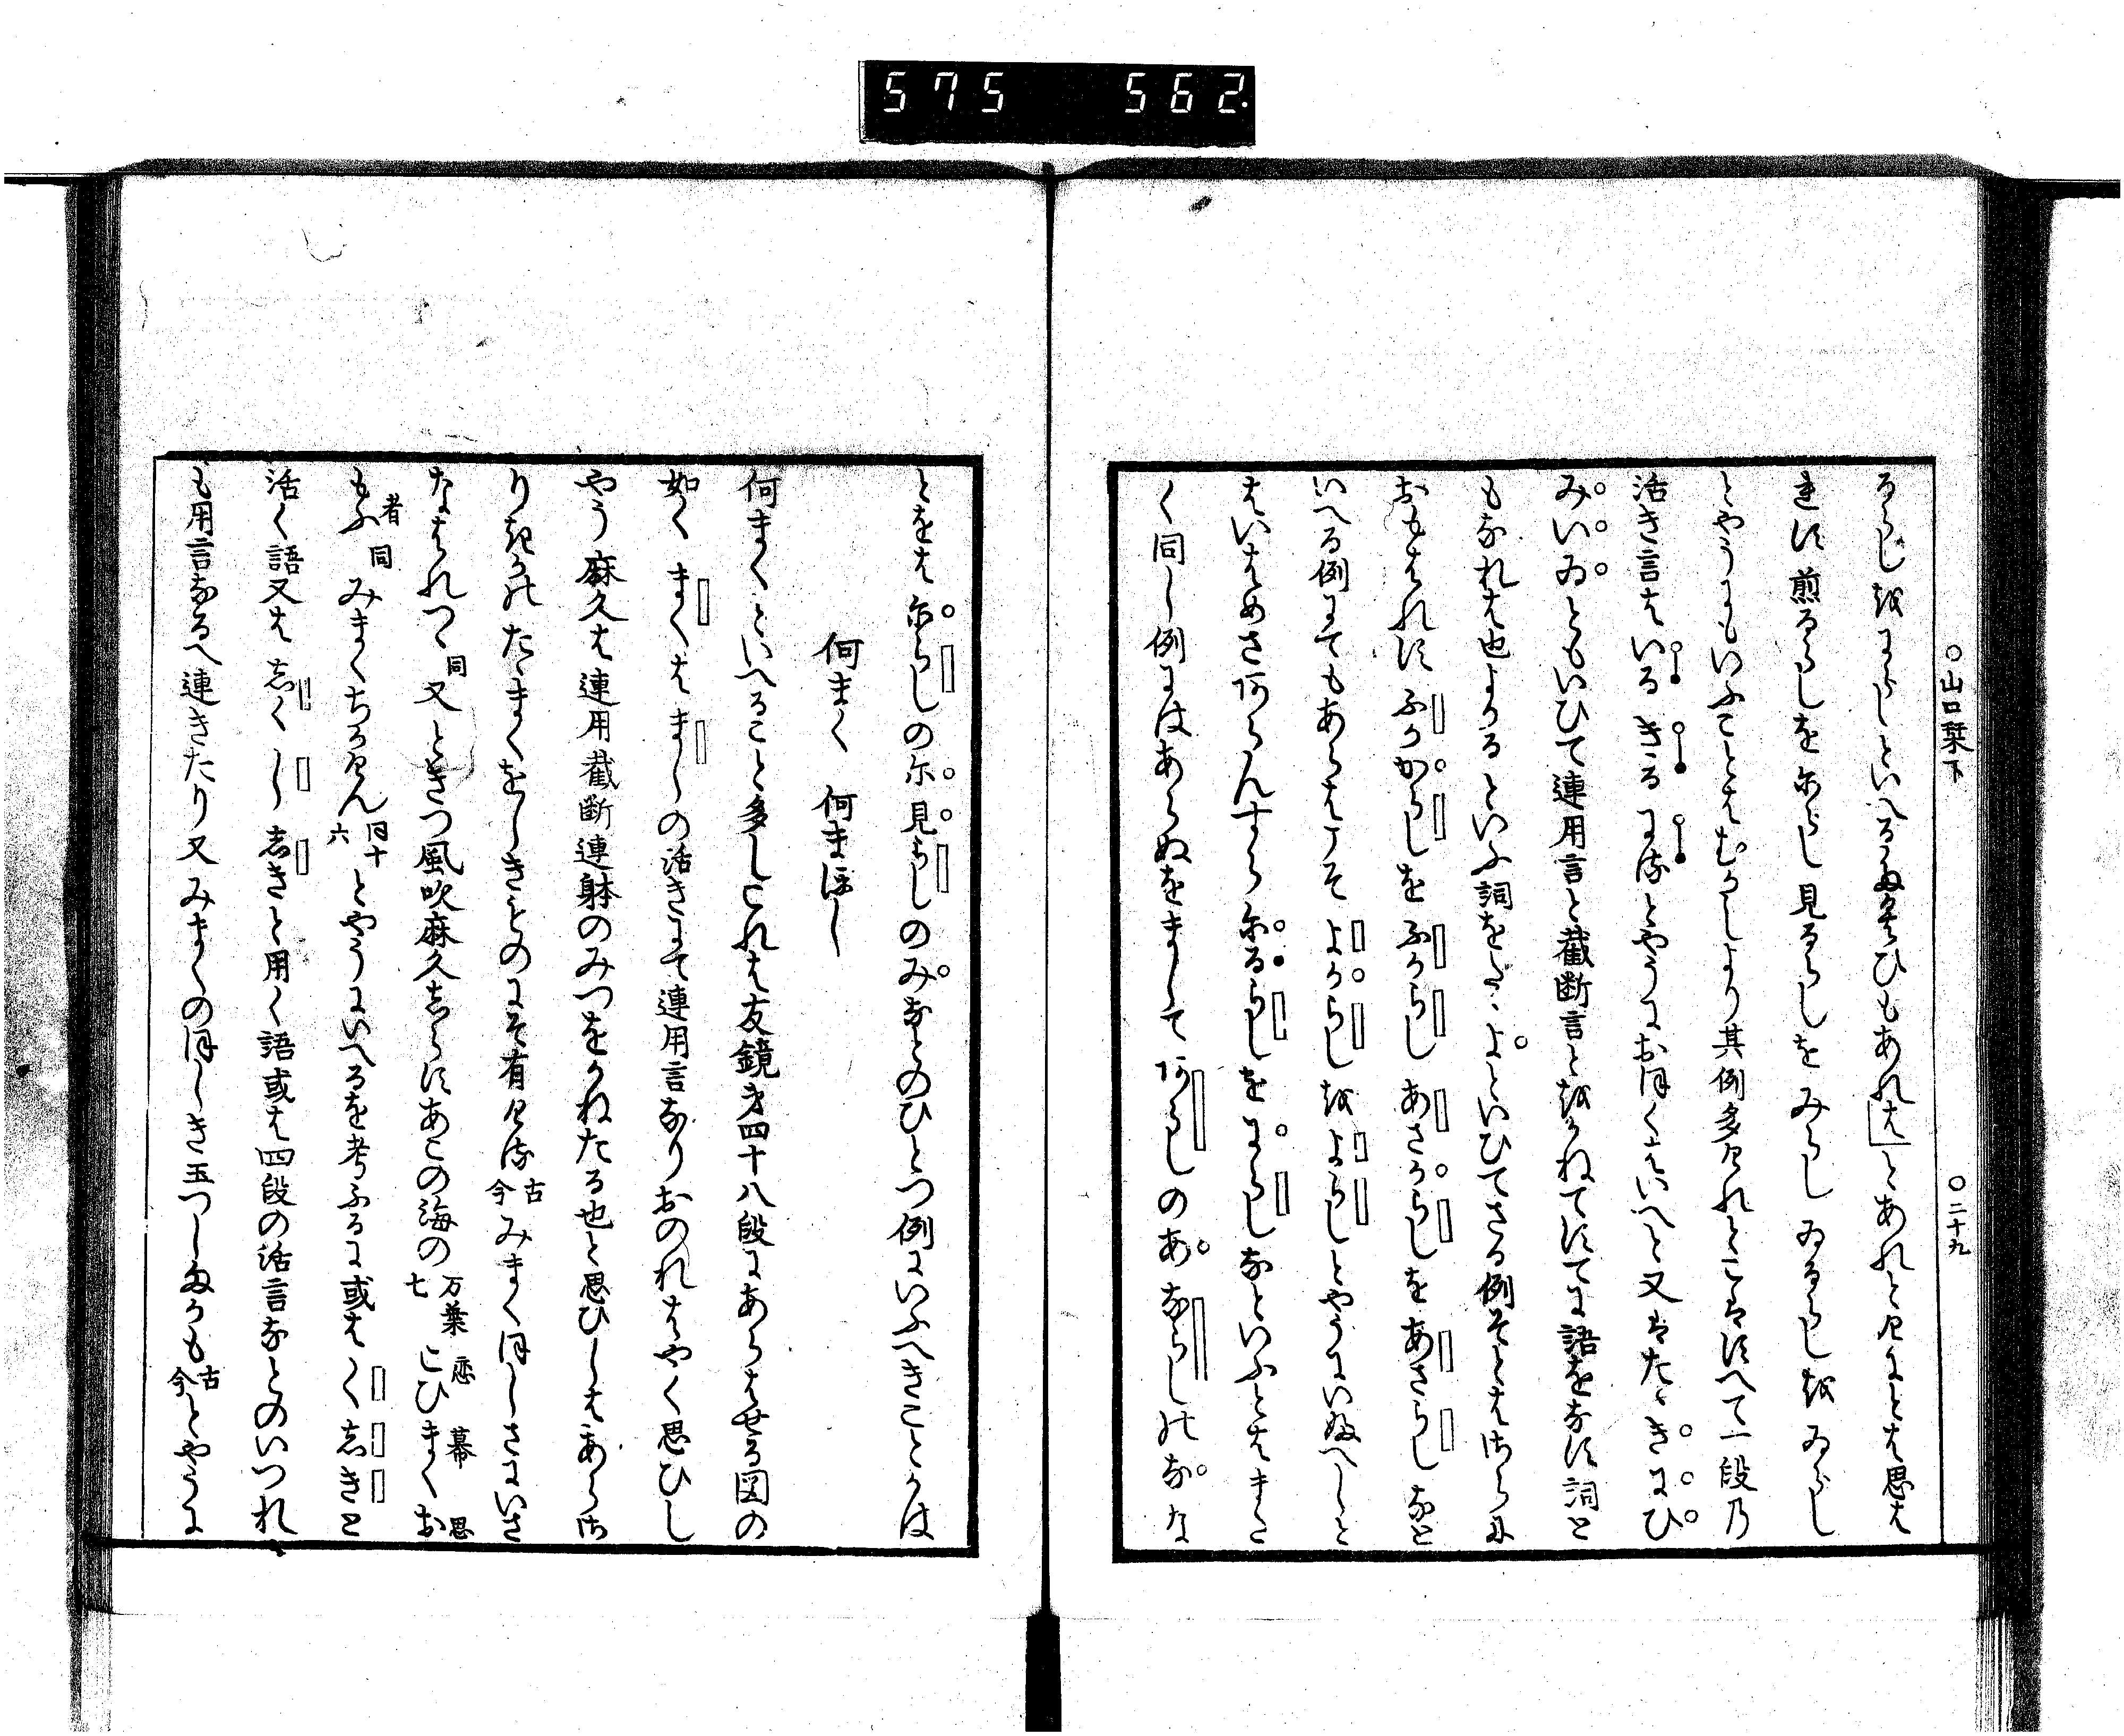 575 562
○山口栞下 ○二十九
るらしをにらしといへるたくひもあれは」とあれとけにとは思は
れす煎るらしを尓らし見るらしをみらしゐるらしをゐらし
とやうにもいふことはむかしより其例多けれとこはすへて一段乃
活き言はいるきるにるとやうにおほくはいへと又はたゝきにひ
みいゐともいひて連用言と截断言とをかねてすてに語をなす詞と
もなれは也よるといふ詞をたゝよといひてさる例そとはさらに
おもはれすふかからしをふからしあさからしをあさらしなと
いへる例にてもあらはこそよからしをよらしとやうにいふへしと
はいはめさあらんすら尓るらしをにらしなといふとはまた
く同し例にはあらぬをましてあらしのあならしのな
とをは尓らしの尓見らしのみなとのひとつ例にいふへきことかは
何まく 何まほし
何まくといへること多しこれは友鏡才四十八段にあらはせる図の
如くまくはましの活きにて連用言なりおのれはやく思ひし
やう麻久は連用截断連躰のみつをかねたる也と思ひしはあらさ
りきかのたゝまくをしきものにそ有ける古今みまくほしさにいさ
なはれつゝ同又ときつ風吹麻久しらすあこの海の万葉七こひ恋まく幕お思
もふ者同みまくちかけん同十六とやうにいへるを考ふるに或はくしきと
活く語又はしくししきと用く語或は四段の活言なとのいつれ
も用言なるへ連きたり又みまくのほしき玉つしまかも古今とやうに